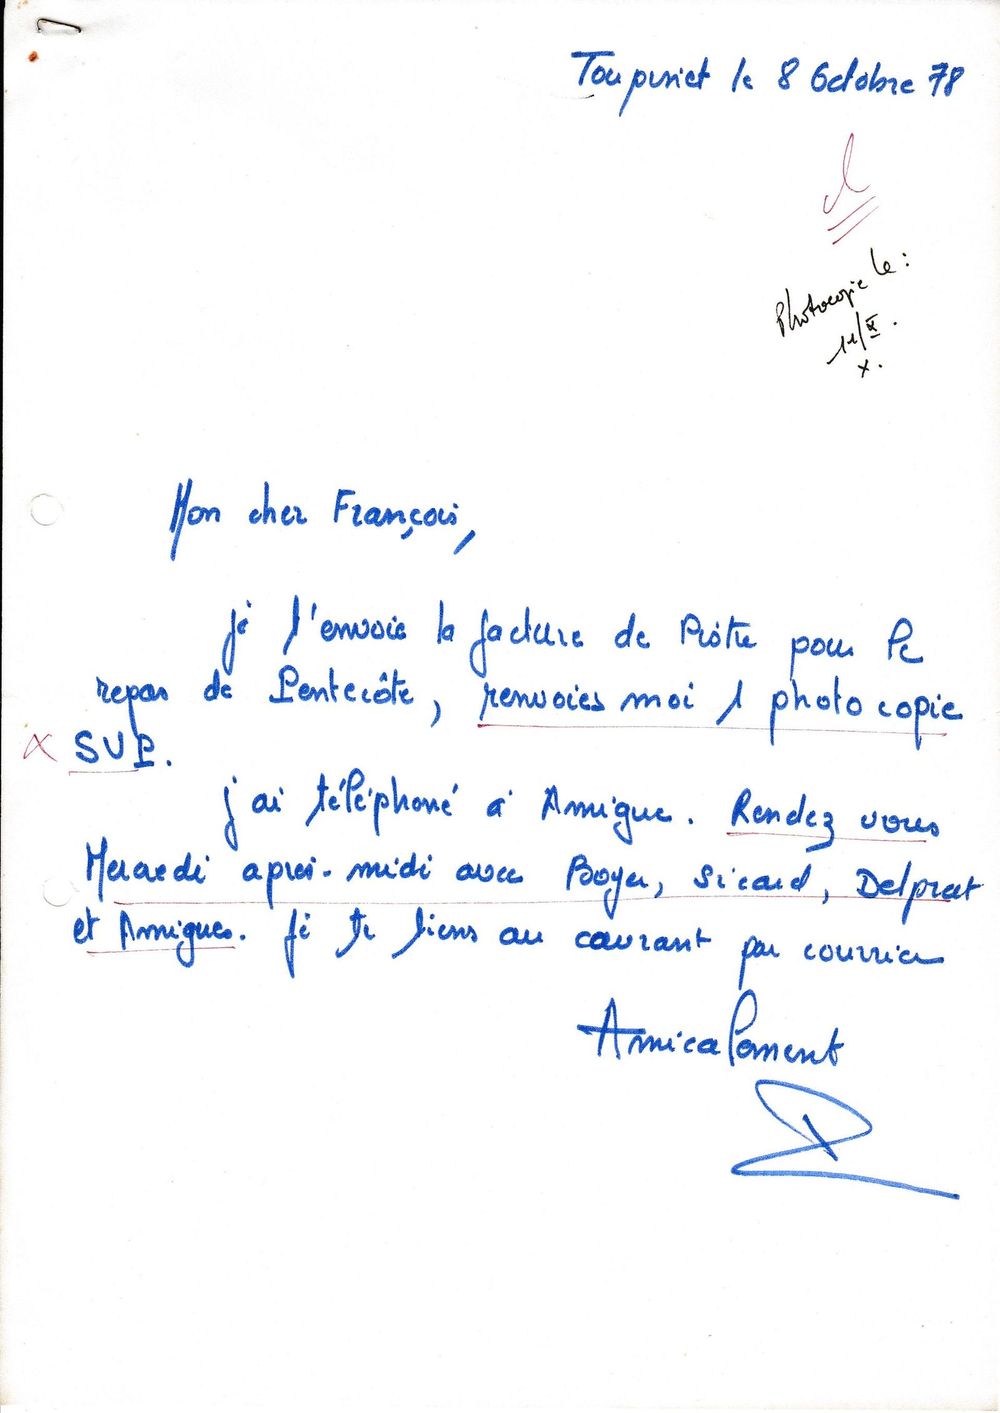 Toupiniet le 8 Octobre 78
Photocopie le :
11/X.
x.
Mon cher François,
Je t'envoie la facture de Piôtre pour le
repas de Pentecôte, renvoies moi 1 photocopie
x SVP.
J'ai téléphoné à Amigue. Rendez vous
Mercredi après-midi avec Boyer, Sicard, Delprat
et Amigues. Je te tiens au courant par courrier
Amicalement